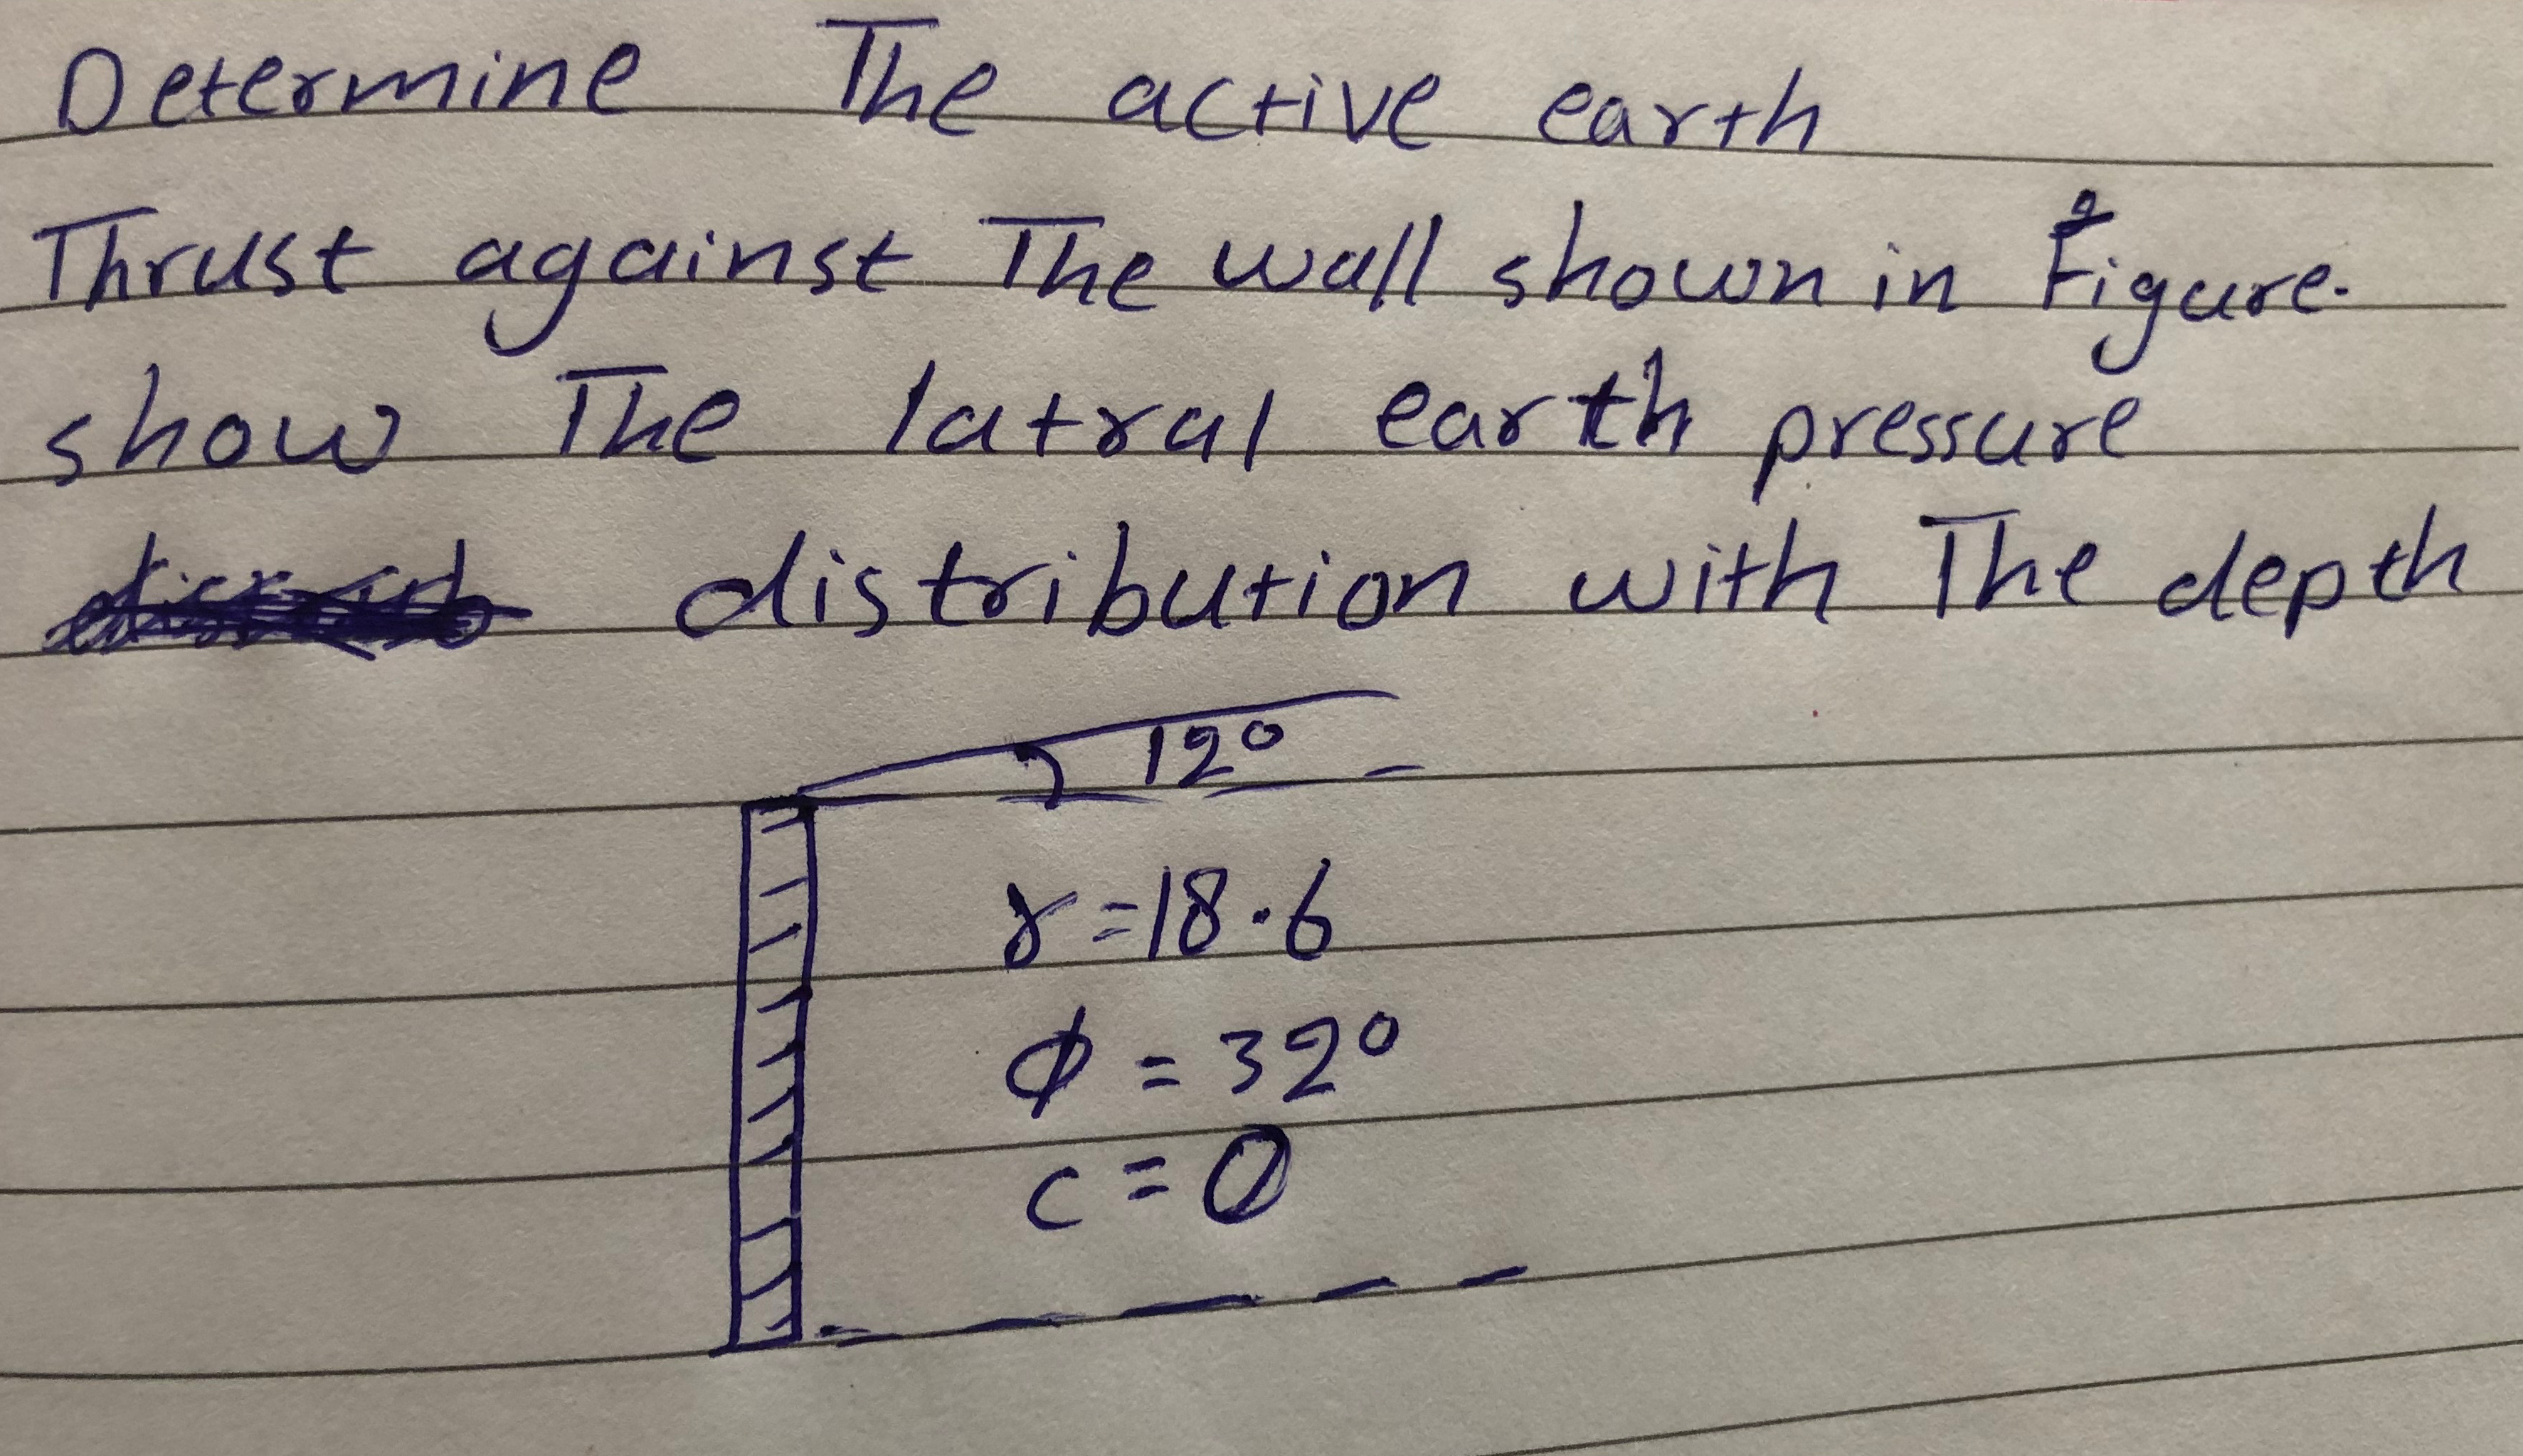 Determine The active earth
Thrust against The wall shown in Figure.
show The latral earth pressure
distribution with The depth
12°
γ=18.6
φ=32°
c=0